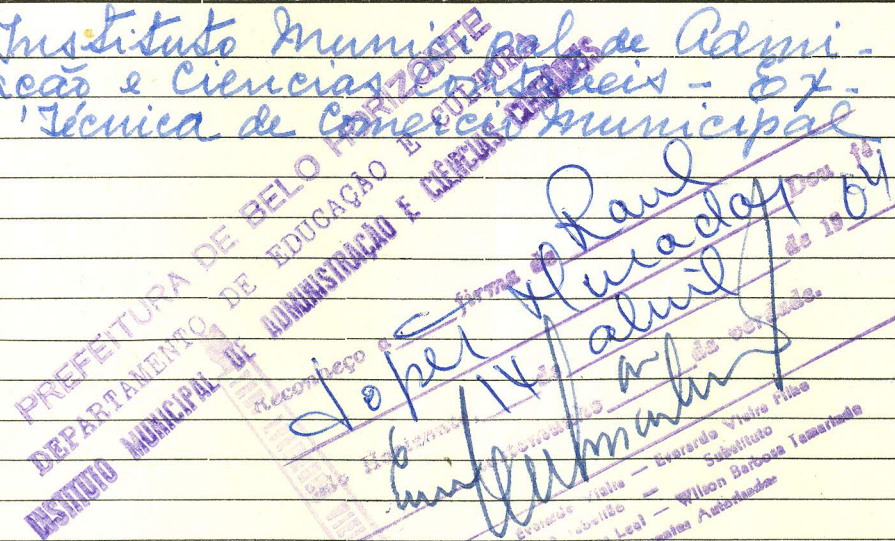 Instituto Municipal de Admi-
ação e Ciencias Contabeis - Ex-
Técnica de Comercio Municipal
PREFEITURA DE BELO HORIZONTE
DEPARTAMENTO DE EDUCAÇÃO E CULTURA
INSTITUTO MUNICIPAL DE ADMINISTRAÇÃO E CIÊNCIAS CONTÁBEIS
Reconheço a firma de Raul
Lopes Murad Dou fé
Horizonte, 14 de abril de 1964
Em testemunho da verdade.
Everardo Vieira — Everardo Vieira Filho
Tabelião — Substituto
Leal — Wilson Barbosa Tamarindo
Autorizados